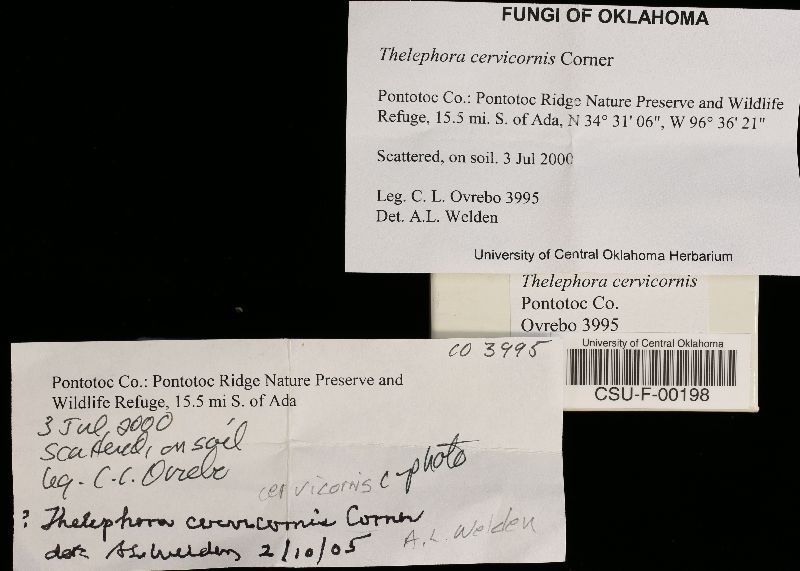 FUNGI OF OKLAHOMA
Thelephora cervicornis Corner
Pontotoc Co.: Pontotoc Ridge Nature Preserve and Wildlife
Refuge, 15.5 mi. S. of Ada, N 34° 31' 06", W 96° 36' 21"
Scattered, on soil. 3 Jul 2000
Leg. C. L. Ovrebo 3995
Det. A.L. Welden
University of Central Oklahoma Herbarium
Thelephora cervicornis
Pontotoc Co.
Ovrebo 3995
University of Central Oklahoma
CSU-F-00198
CO 3995
Pontotoc Co.: Pontotoc Ridge Nature Preserve and
Wildlife Refuge, 15.5 mi S. of Ada
3 Jul, 2000
scattered, on soil
leg. C.L. Ovrebo
cervicornis C-photo
? Thelephora cervicornis Corner
det. A.L. Welden 2/10/05 A.L. Welden